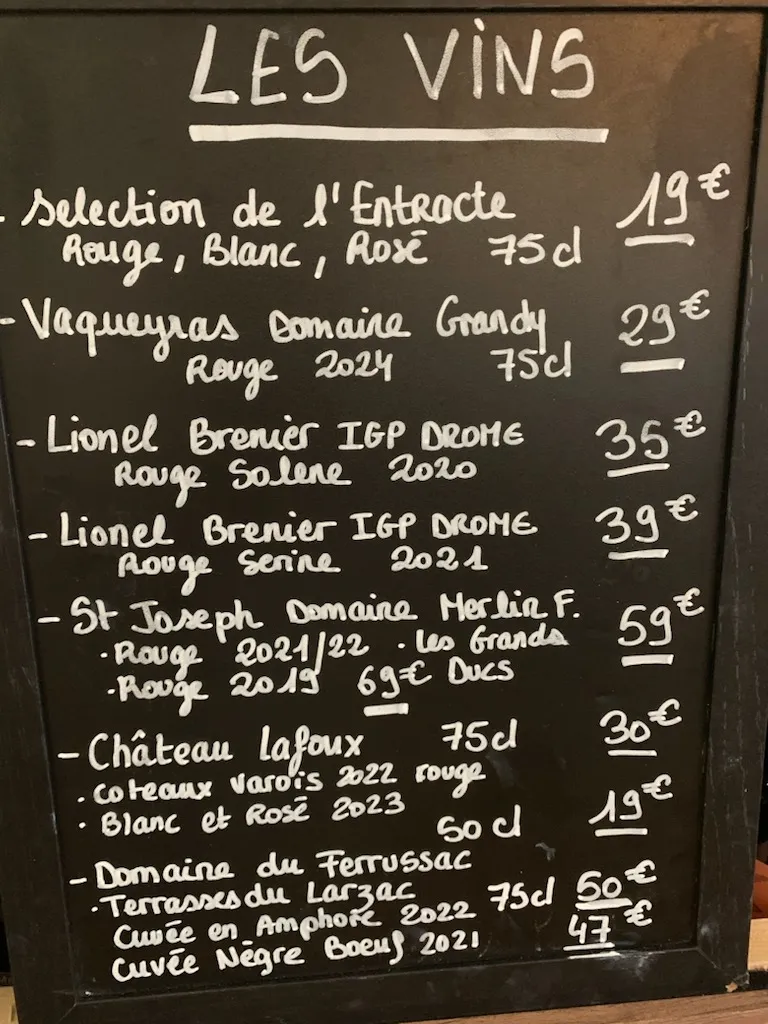 LES VINS
- selection de l'Entracte 19€
Rouge, Blanc, Rosé 75cl
- Vaqueyras Domaine Grandy 29€
Rouge 2024 75cl
- Lionel Brenier IGP DROME 35€
Rouge Solene 2020
- Lionel Brenier IGP DROME 39€
Rouge Serine 2021
- St Joseph Domaine Merlin F. 59€
· Rouge 2021/22 · Les Grands
· Rouge 2019 69€ Ducs
- Château Lafoux 75cl 30€
· Coteaux Varois 2022 rouge
· Blanc et Rosé 2023 19€
50cl
- Domaine du Ferrussac
· Terrasses du Larzac 75cl 50€
Cuvée en Amphore 2022 47€
Cuvée Nègre Boeuf 2021